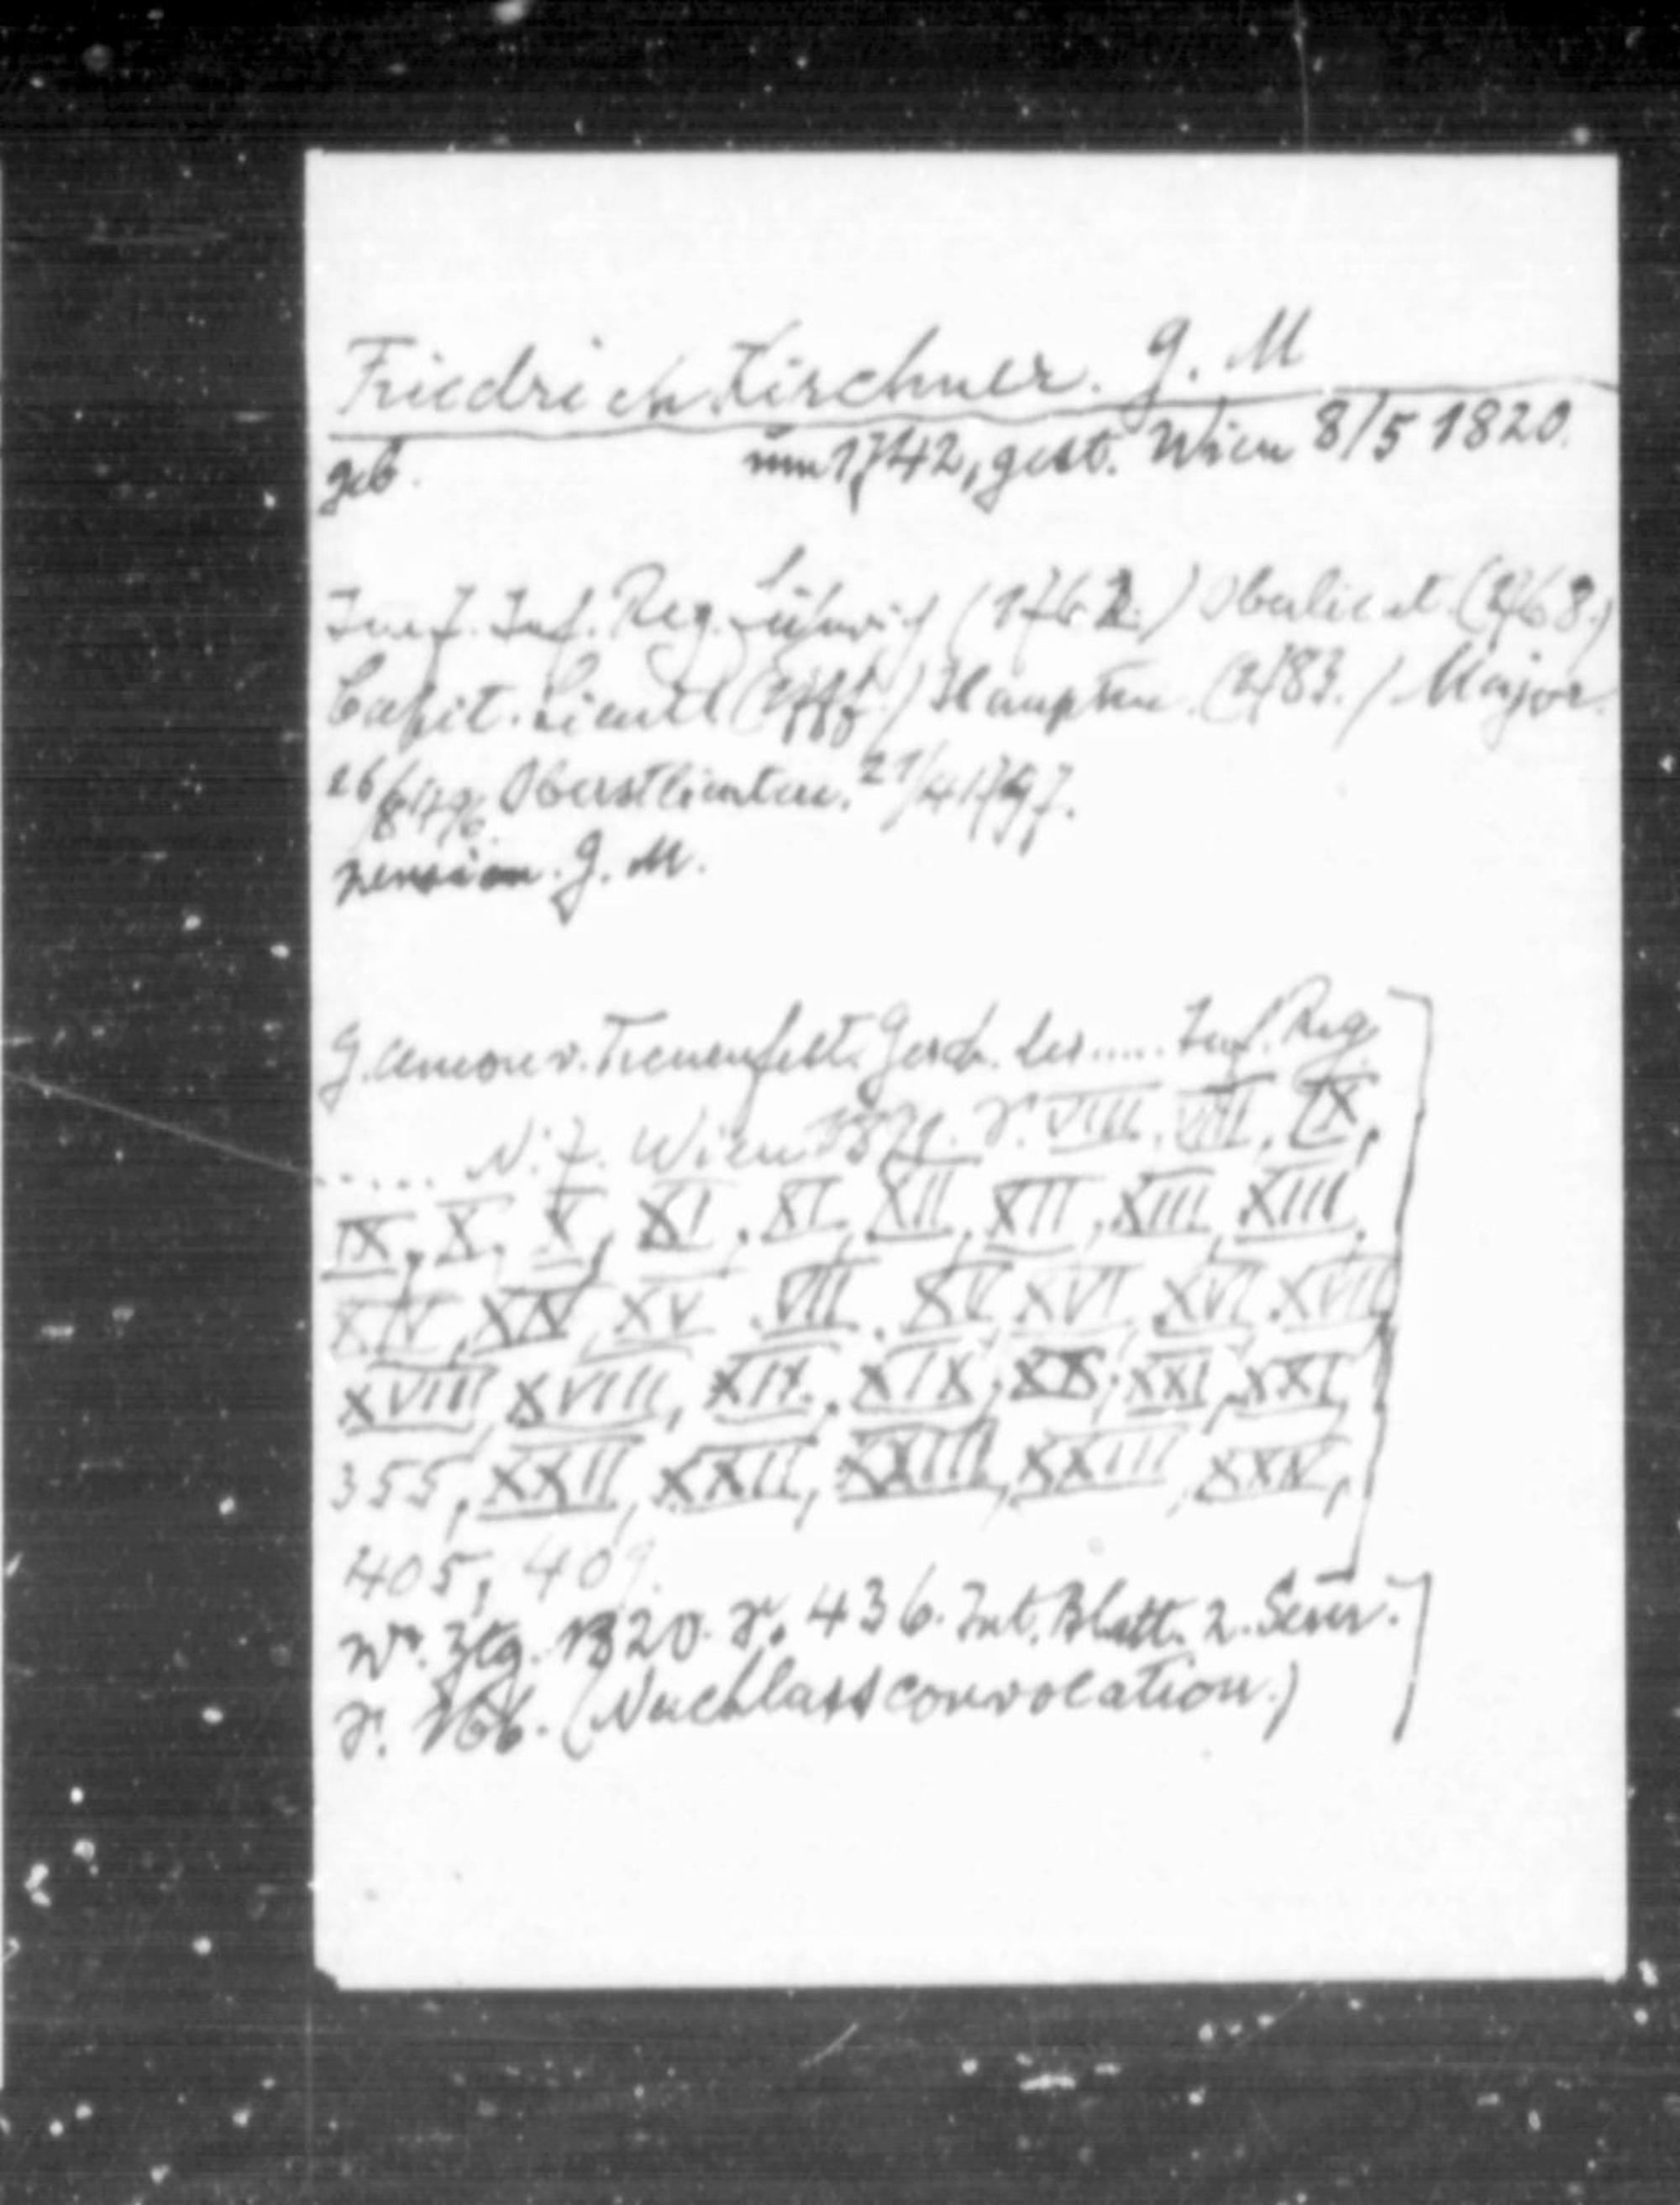 Friedrich Kirchner. G. M
geb. um 1742, gest. Wien 8/5 1820.
Inf. Reg. Oberlieut. (1768.)
Capit. Lieutt Hauptm. (1783.) Major
26/8 1796. Oberstlieuten. 21/4 1797.
pension. G. M.
G. Amon v. Treuenfest. Gesch. des ..... Inf. Reg.
..... N. 7. Wien 1879. S. VIII. VIII, IX,
IX, X, X, XI, XI, XII, XII, XIII, XIII,
XIV, XIV, XV. VII. XV, XVI, XVI. XVII
XVIII, XVIII, XIX, XIX, XX, XXI, XXI,
355, XXII, XXII, XXIII, XXIII, XXIV,
405, 409.
Wr. Ztg. 1820. S. 436. Int. Blatt. 2. Sem.
S. 166. (Nachlassconvocation.)